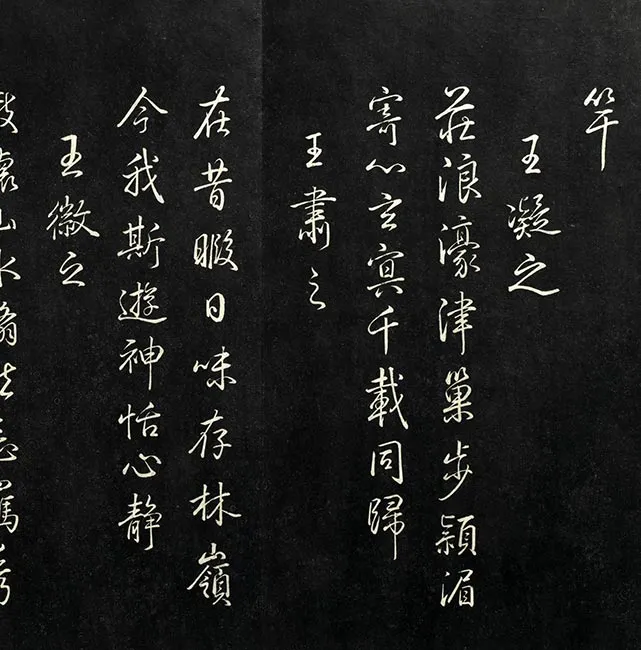 竿
王凝之
莊浪濠津巢步潁湄
寄心玄冥千載同歸
王肅之
在昔暇日味存林嶺
今我斯遊神恬心靜
王徽之
山水